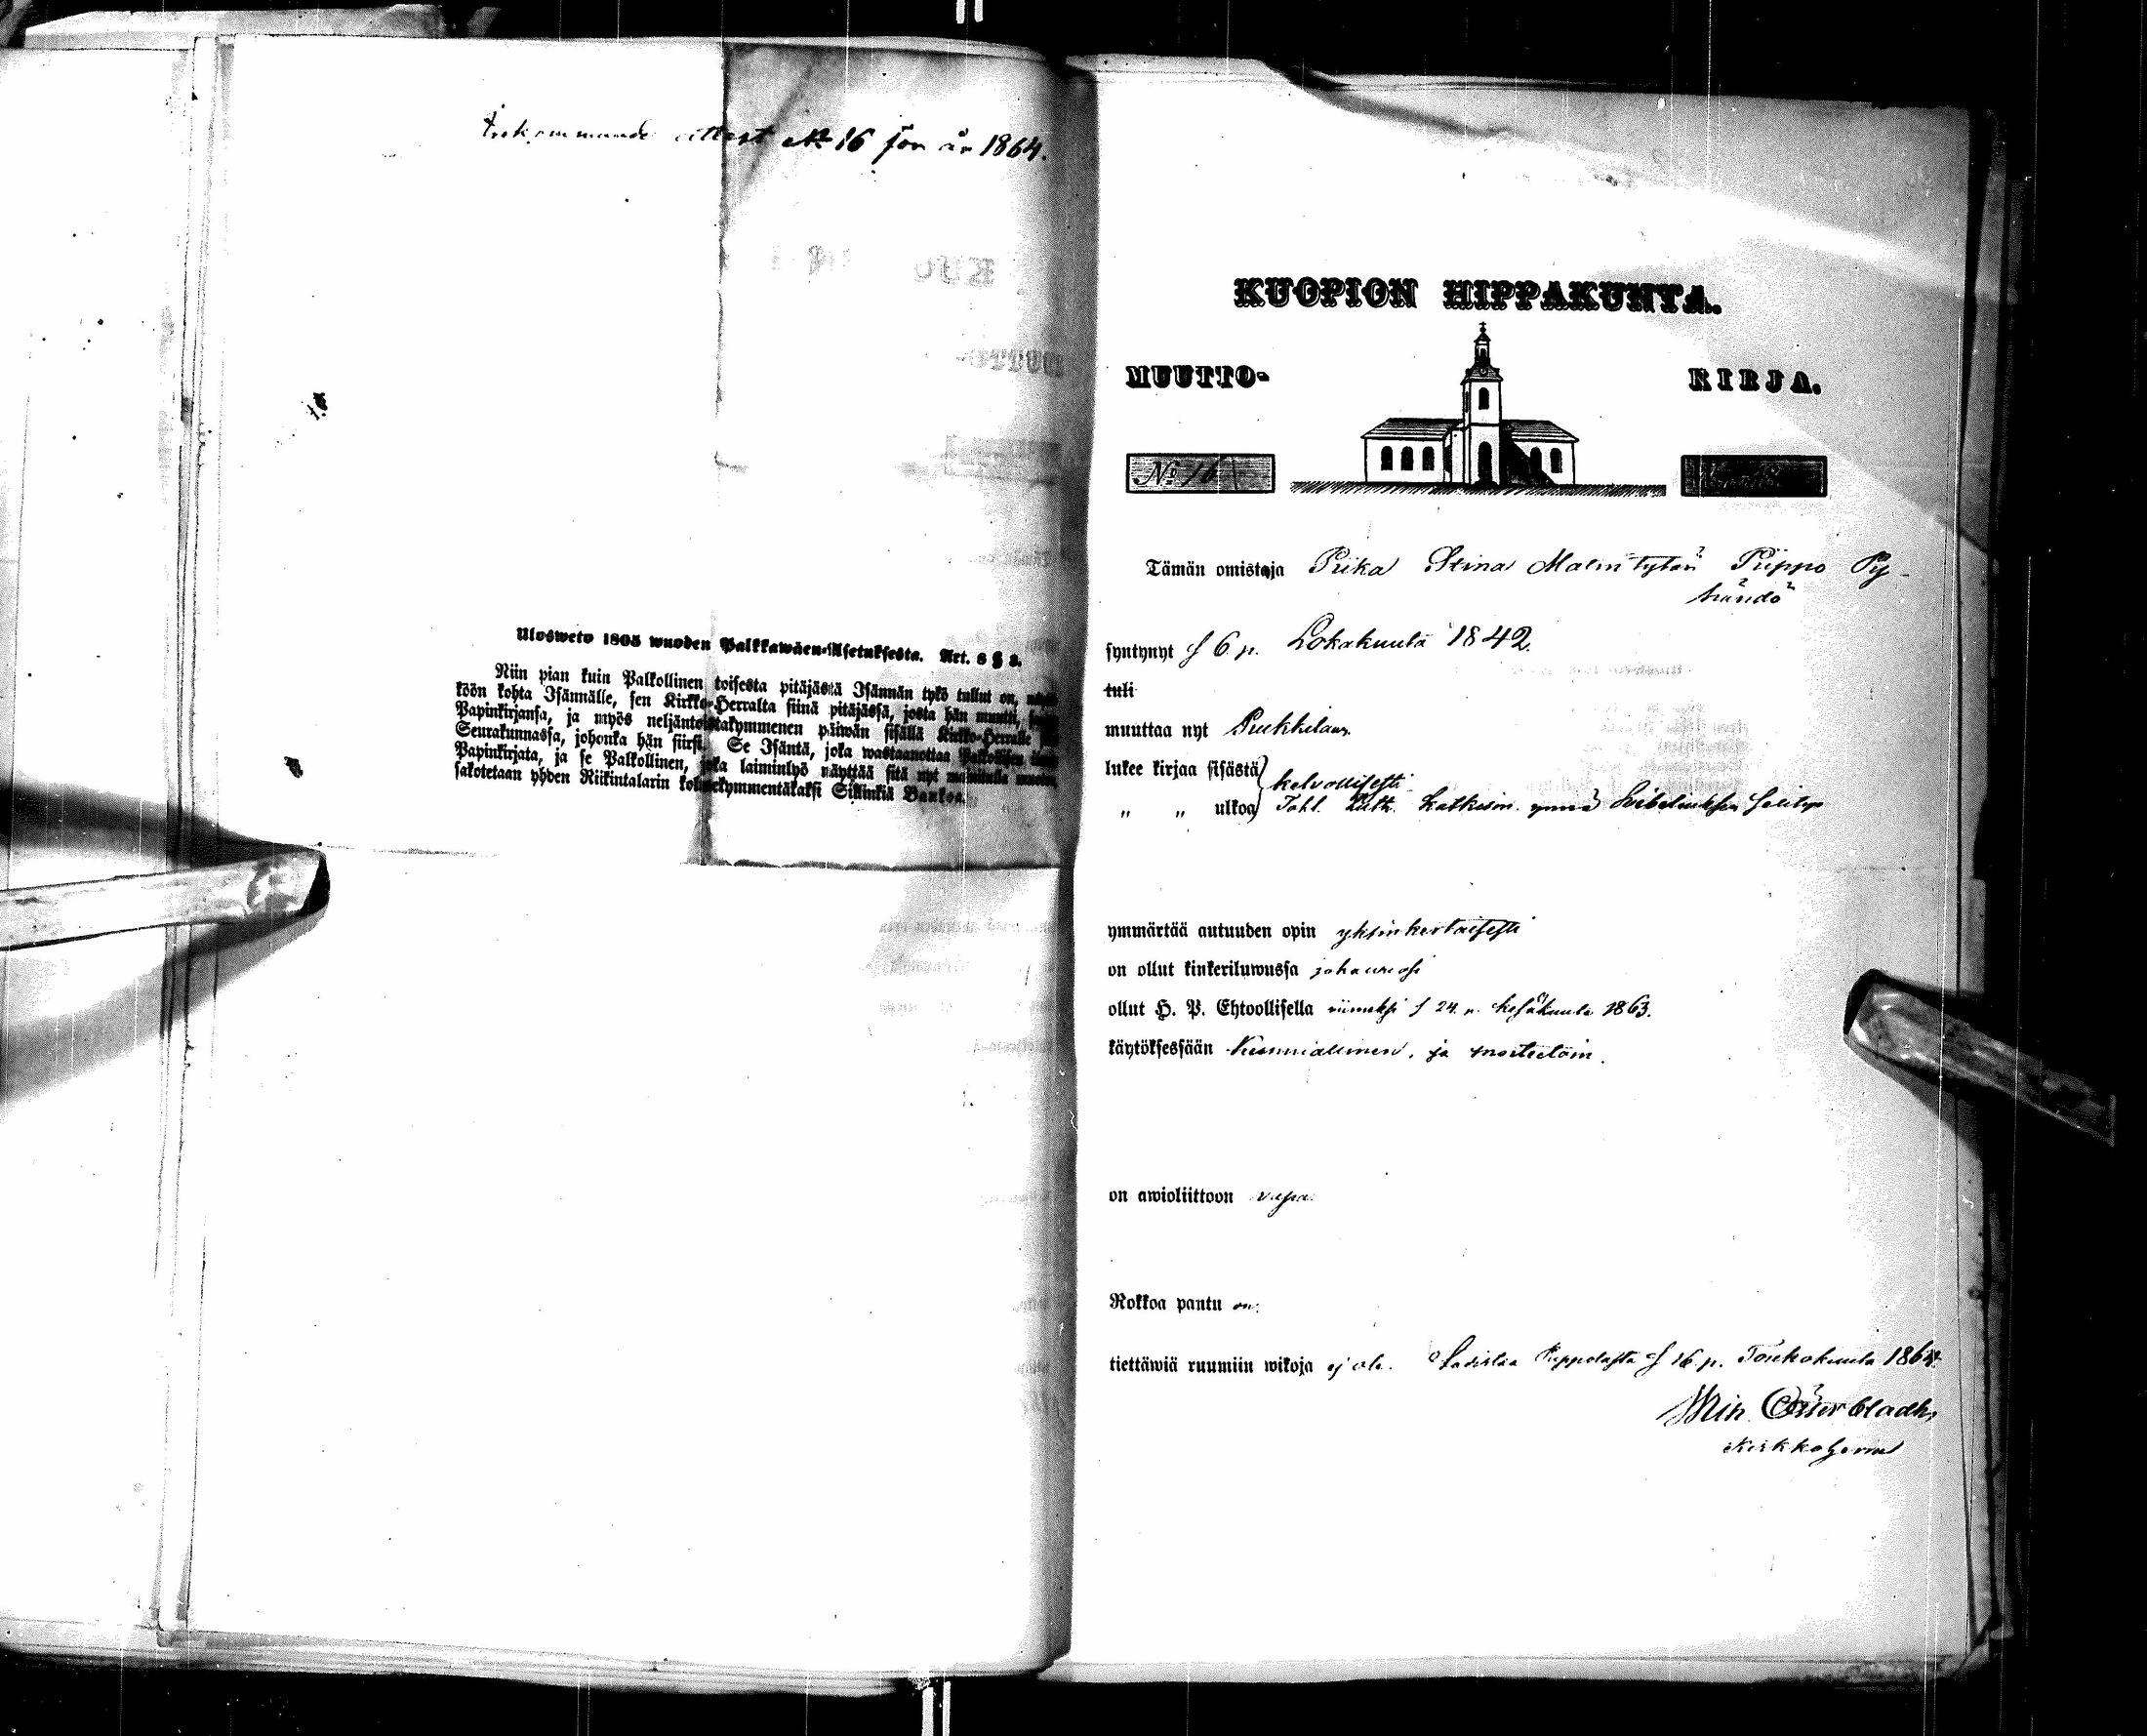 Inkommande attest № 16 för år 1864.
Ulosweto 1805 wuoden Palkkawäen-Asetuksesta. Art. 8 § 3.
Niin pian kuin Palkollinen toisesta pitäjästä Isännän tykö tullut on,
köön kohta Isännälle, sen Kirkko-Herralta siinä pitäjässä, josta hän muutti,
Papinkirjansa, ja myös neljäntoistakymmenen päiwän sisällä Kirkko-Herralle
Seurakunnassa, johonka hän siirsi. Se Isäntä, joka wastaanottaa Palkollisen
Papinkirjata, ja se Palkollinen, joka laiminlyö näyttää sitä nyt
sakotetaan yhden Riikintalarin kolmekymmentäkaksi Sillinkiä Bankoa.
KUOPION HIPPAKUNTA.
MUUTTO- KIRJA.
№ 16
Tämän omistaja Stina tytär Piippo Py-
syntynyt 6 p. Lokakuuta 1842
tuli
muuttaa nyt Pulkkilaan.
lukee kirjaa sisästä
kelvollisesti
" " ulkoa Luth. Katkism. ynnä selitys
ymmärtää autuuden opin yksinkertaisesti
on ollut kinkeriluwussa
ollut H. P. Ehtoollisella wiimeksi 24 p. kesäkuuta 1863.
käytöksessään kunniallinen, ja moiteetoin.
on awioliittoon vapa.
Rokkoa pantu on.
tiettäwiä ruumiin wikoja ej ole. Piippolasta 16 p. Toukokuuta 1864.
Österbladh
Kirkkoherra